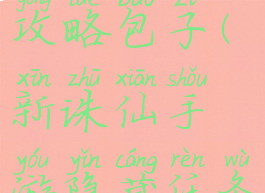 gōng lüè bāo zi
攻略包子(
xīn zhū xiān shǒu
新诛仙手
yóu yǐn cáng rèn wù
游隐藏任务